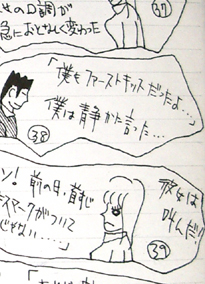 37
女の口調が
急におとなしく変わった
「僕もファーストキッスだったよ…」
僕は静かに言った…
38
彼女は
叫んだ!
ソ! 前の日、首すじ
スマークがついて
じゃない……」
39